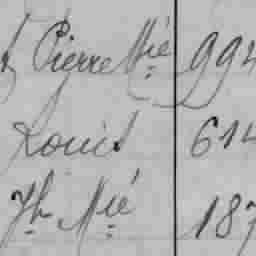 Pierre Mié 994
Louis 614
Jh Mié 187